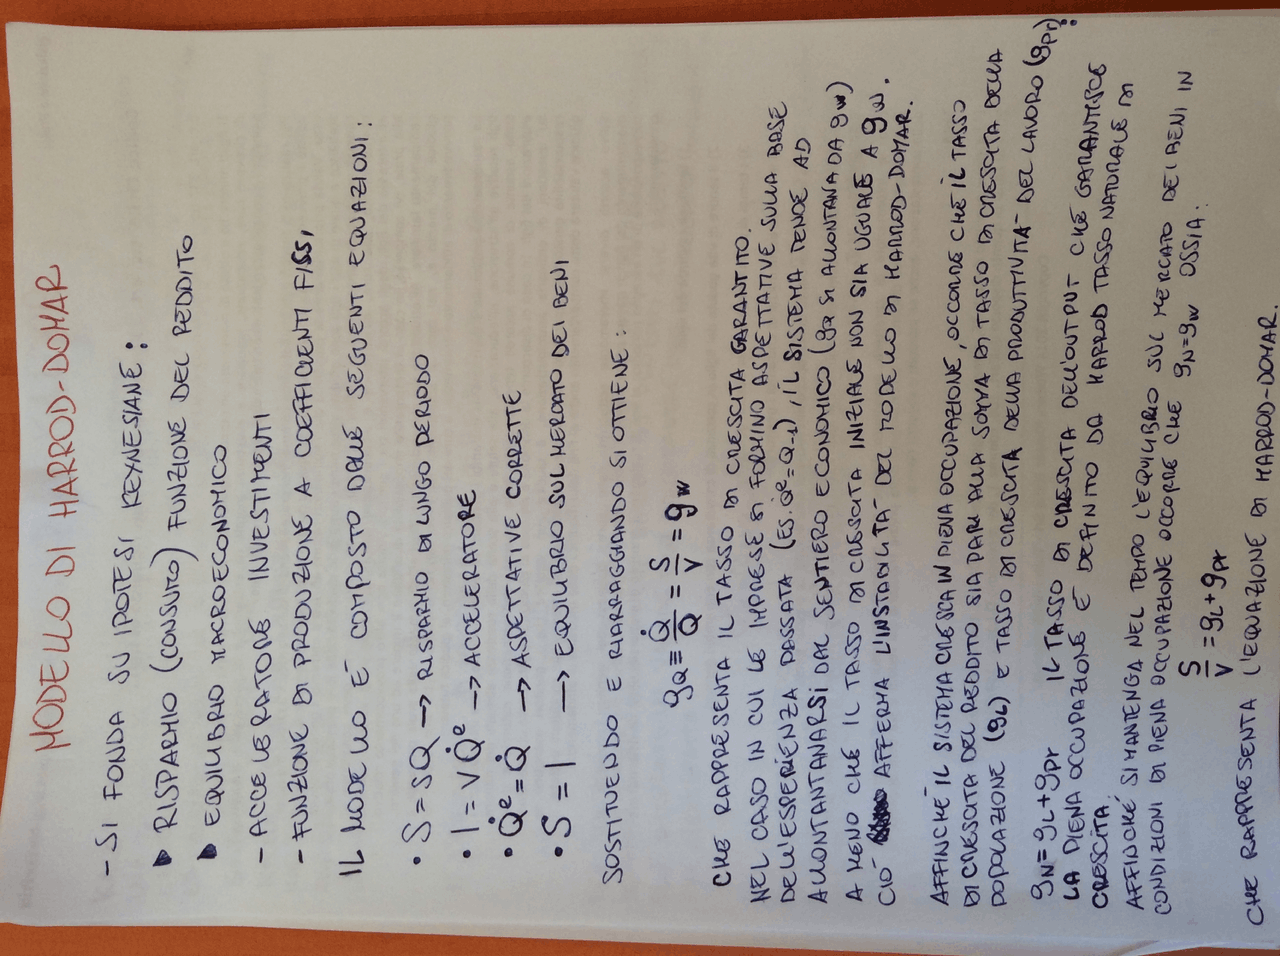 MODELLO DI HARROD-DOMAR
- SI FONDA SU IPOTESI KEYNESIANE:
▶ RISPARMIO (CONSUMO) FUNZIONE DEL REDDITO
▶ EQUILIBRIO MACROECONOMICO
- ACCELERATORE INVESTIMENTI
- FUNZIONE DI PRODUZIONE A COEFFICIENTI FISSI
IL MODELLO È COMPOSTO DALLE SEGUENTI EQUAZIONI:
• S = sQ → RISPARMIO DI LUNGO PERIODO
• I = vQ̇ᵉ → ACCELERATORE
• Q̇ᵉ = Q̇ → ASPETTATIVE CORRETTE
• S = I → EQUILIBRIO SUL MERCATO DEI BENI
SOSTITUENDO E RIARRAGGIANDO SI OTTIENE:
gQ = Q̇/Q = S/V = gw
CHE RAPPRESENTA IL TASSO DI CRESCITA GARANTITO.
NEL CASO IN CUI LE IMPRESE SI FORMINO ASPETTATIVE SULLA BASE
DELL'ESPERIENZA PASSATA (ES. Qᵉ = Q-1), IL SISTEMA TENDE AD
ALLONTANARSI DAL SENTIERO ECONOMICO (gQ SI ALLONTANA DA gw)
A MENO CHE IL TASSO DI CRESCITA INIZIALE NON SIA UGUALE A gw.
CIÒ AFFERMA L'INSTABILITÀ DEL MODELLO DI HARROD-DOMAR.
AFFINCHÈ IL SISTEMA CRESCA IN PIENA OCCUPAZIONE, OCCORRE CHE IL TASSO
DI CRESCITA DEL REDDITO SIA PARI ALLA SOMMA DI TASSO DI CRESCITA DELLA
POPOLAZIONE (gL) E TASSO DI CRESCITA DELLA PRODUTTIVITÀ DEL LAVORO (gpr):
gN = gL + gpr IL TASSO DI CRESCITA DELL'OUTPUT CHE GARANTISCE
LA PIENA OCCUPAZIONE È DEFINITO DA HARROD TASSO NATURALE DI
CRESCITA
AFFINCHÉ SI MANTENGA NEL TEMPO L'EQUILIBRIO SUL MERCATO DEI BENI IN
CONDIZIONI DI PIENA OCCUPAZIONE OCCORRE CHE gN = gw OSSIA:
S/V = gL + gpr
CHE RAPPRESENTA L'EQUAZIONE DI HARROD-DOMAR.